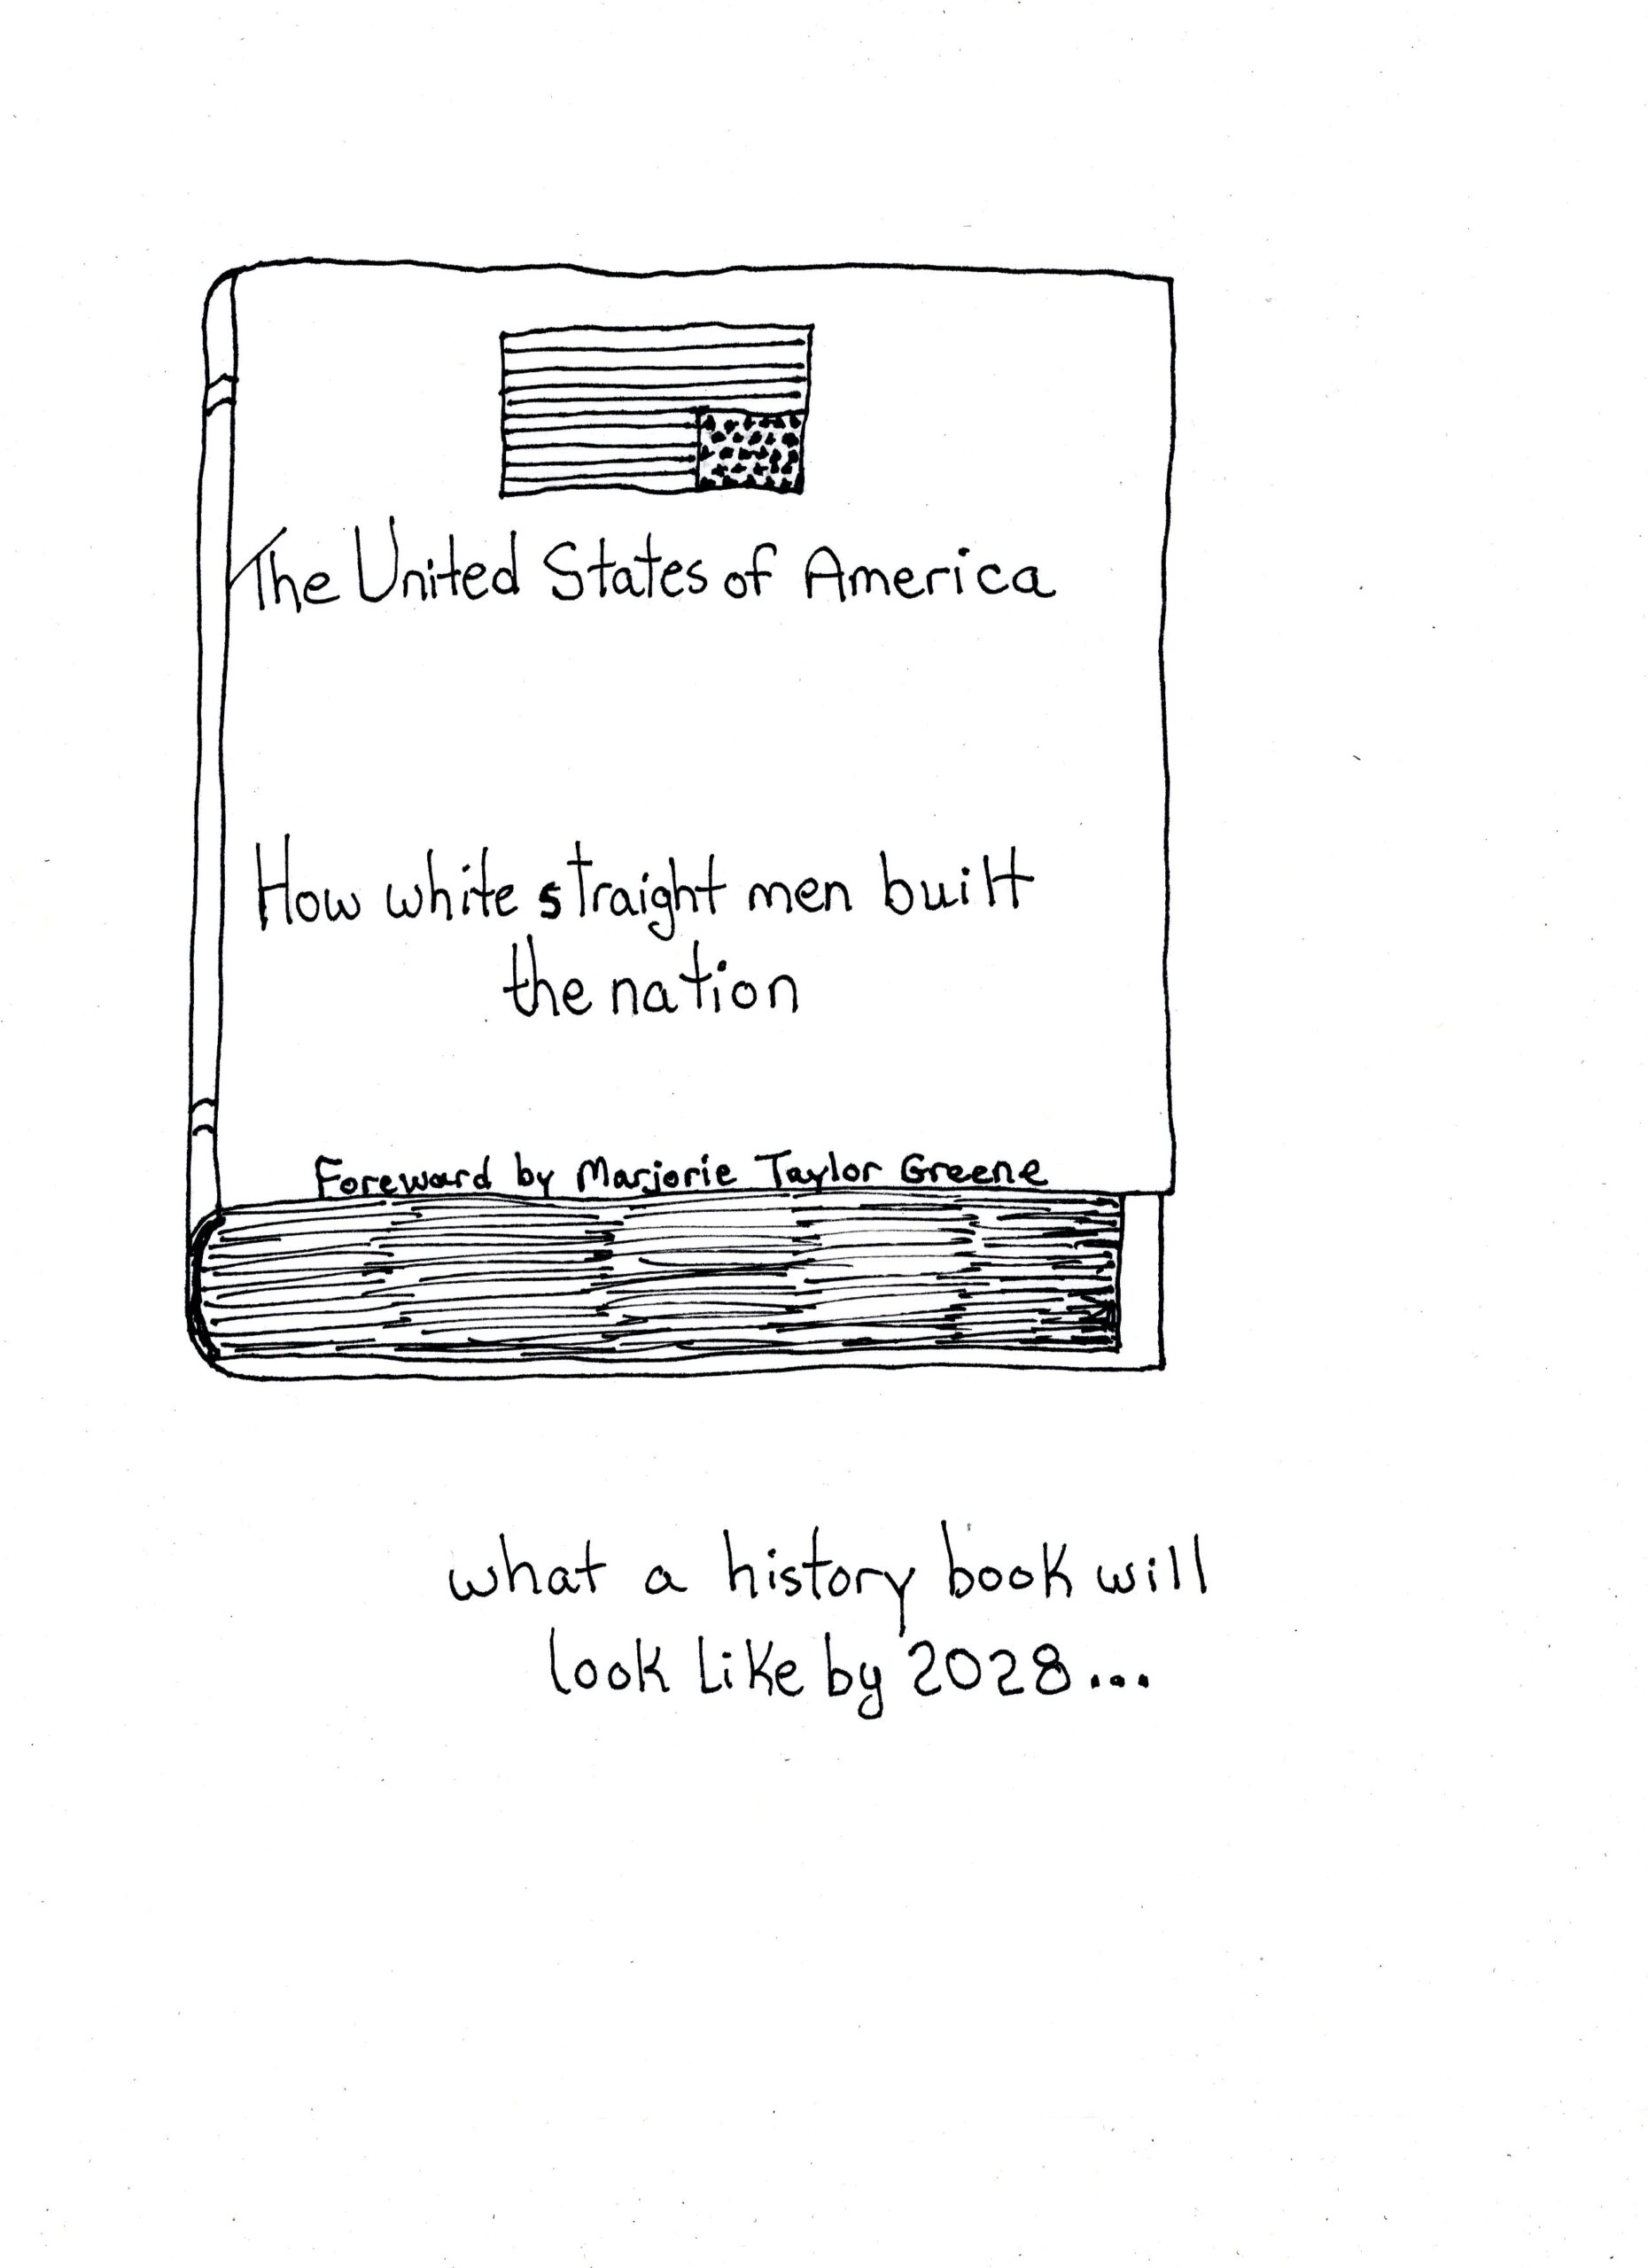 The United States of America
How white straight men built
the nation
Foreward by Marjorie Taylor Greene
what a history book will
look like by 2028...